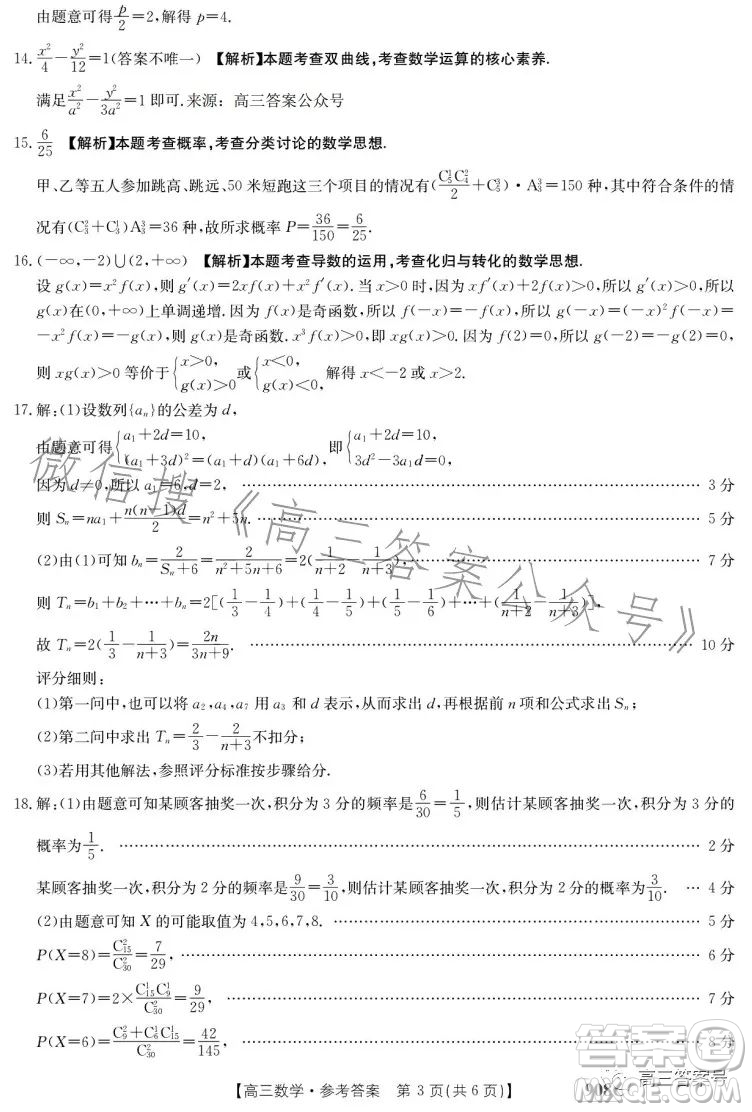 由题意可得p/2=2,解得 p=4.
14. x²/4-y²/12=1(答案不唯一) 【解析】本题考查双曲线,考查数学运算的核心素养.
满足x²/a²-y²/3a²=1 即可.来源: 高三答案公众号
15. 6/25 【解析】本题考查概率,考查分类讨论的数学思想.
甲、乙等五人参加跳高、跳远、50 米短跑这三个项目的情况有(C₅¹C₄²/2+C₅³)·A₃³=150 种,其中符合条件的情
况有(C₃²+C₃¹)A₃³=36 种,故所求概率 P=36/150=6/25.
16. (-∞,-2)∪(2,+∞) 【解析】本题考查导数的运用,考查化归与转化的数学思想.
设 g(x)=x²f(x),则 g′(x)=2xf(x)+x²f′(x).当 x>0 时,因为 xf′(x)+2f(x)>0,所以 g′(x)>0,所以
g(x)在(0,+∞)上单调递增.因为 f(x)是奇函数,所以 f(-x)=-f(x),所以 g(-x)=(-x)²f(-x)=
-x²f(x)=-g(x),则 g(x)是奇函数.x³f(x)>0,即 xg(x)>0.因为 f(2)=0,所以 g(-2)=-g(2)=0,
则 xg(x)>0 等价于{x>0, g(x)>0或{x<0, g(x)<0, 解得 x<-2 或 x>2.
17. 解:(1)设数列{aₙ}的公差为 d,
由题意可得{a₁+2d=10, (a₁+3d)²=(a₁+d)(a₁+6d), 即{a₁+2d=10, 3d²-3a₁d=0,
因为 d≠0,所以 a₁=6,d=2, …… 3 分
则 Sₙ=na₁+n(n-1)d/2=n²+5n. …… 5 分
(2)由(1)可知 bₙ=2/(Sₙ+6)=2/(n²+5n+6)=2(1/(n+2)-1/(n+3)), …… 7 分
则 Tₙ=b₁+b₂+…+bₙ=2[(1/3-1/4)+(1/4-1/5)+(1/5-1/6)+…+(1/(n+2)-1/(n+3))],
故 Tₙ=2(1/3-1/(n+3))=2n/(3n+9). …… 10 分
评分细则:
(1)第一问中,也可以将 a₂,a₄,a₇ 用 a₃ 和 d 表示,从而求出 d,再根据前 n 项和公式求出 Sₙ;
(2)第二问中求出 Tₙ=2/3-2/(n+3)不扣分;
(3)若用其他解法,参照评分标准按步骤给分.
18. 解:(1)由题意可知某顾客抽奖一次,积分为 3 分的频率是6/30=1/5,则估计某顾客抽奖一次,积分为 3 分的
概率为1/5. …… 2 分
某顾客抽奖一次,积分为 2 分的频率是9/30=3/10,则估计某顾客抽奖一次,积分为 2 分的概率为3/10. … 4 分
(2)由题意可知 X 的可能取值为 4,5,6,7,8. …… 5 分
P(X=8)=C₁₅²/C₃₀²=7/29, …… 6 分
P(X=7)=2×C₁₅¹C₉¹/C₃₀²=9/29, …… 7 分
P(X=6)=(C₉²+C₆¹C₁₅¹)/C₃₀²=42/145, …… 8 分
【高三数学·参考答案 第 3 页(共 6 页)】
908C
微信搜《高三答案公众号》
答案圈
高三答案号